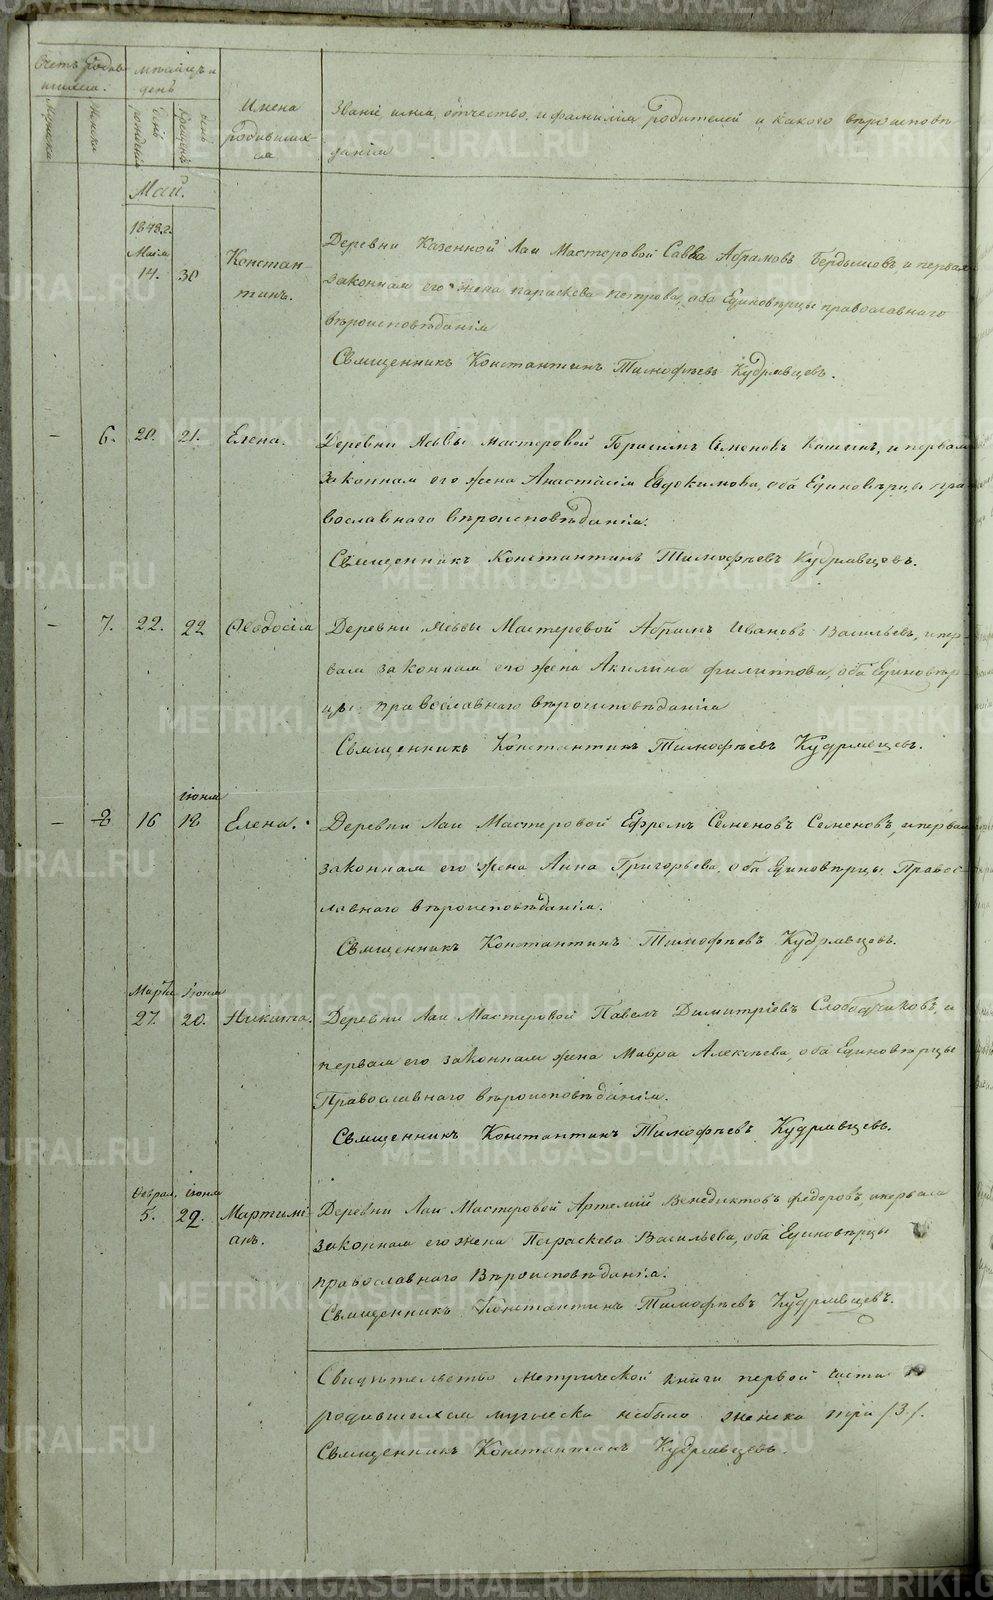 Счетъ родив-
шихся.
Мѣсяцъ и
день
Имена
родивших-
ся
Званіе, имя, отчество, и фамилія родителей и какого вѣроисповѣ-
данія
Мужеска
Женска
рожденія
крещенія
Май.
1848.г.
Маія
14. 30 Констан-
тинъ.
Деревни Казенной Лаи Мастеровой Савва Абрамовъ Бердышевъ и первая
законная его жена Параскева Петрова, оба Единовѣрцы православнаго
вѣроисповѣданія
Священникъ Константинъ Тимофѣевъ Кудрявцевъ.
- 6. 20. 21. Елена. Деревни Ясьвы мастеровой Герасимъ Семеновъ Кашинъ, и первая
законная его жена Анастасія Евдокимова, оба Единовѣрцы пра-
вославнаго вѣроисповѣданія.
Священникъ Константинъ Тимофѣевъ Кудрявцевъ.
- 7. 22. 22 Ѳеодосія Деревни Ясьвы Мастеровой Абрамъ Ивановъ Васильевъ, и пер-
вая законная его жена Акилина Филиппова, оба Единовѣр-
цы православнаго вѣроисповѣданія
Священникъ Константинъ Тимофѣевъ Кудрявцевъ.
іюня
- 8 16 18 Елена. Деревни Лаи Мастеровой Ефремъ Семеновъ Семеновъ, и первая
законная его жена Анна Григорьева, оба Единовѣрцы Правос-
лавнаго вѣроисповѣданія.
Священникъ Константинъ Тимофѣевъ Кудрявцевъ.
Марта іюня
27. 20. Никита. Деревни Лаи Мастеровой Павелъ Димитріевъ Слободчиковъ, и
первая его законная жена Мавра Алексѣева, оба Единовѣрцы
Православнаго вѣроисповѣданія.
Священникъ Константинъ Тимофѣевъ Кудрявцевъ.
Феврал. іюня
5. 29. Мартині-
анъ.
Деревни Лаи Мастеровой Артемій Венедиктовъ Федоровъ, и первая
законная его жена Параскева Васильева, оба Единовѣрцы
православнаго Вѣроисповѣданія.
Священникъ Константинъ Тимофѣевъ Кудрявцевъ.
Свидѣтельство метрической книги первой части
родившихся мужеска небыло женска три /3/.
Священникъ Константинъ Кудрявцевъ.
METRIKI.GASO-URAL.RU